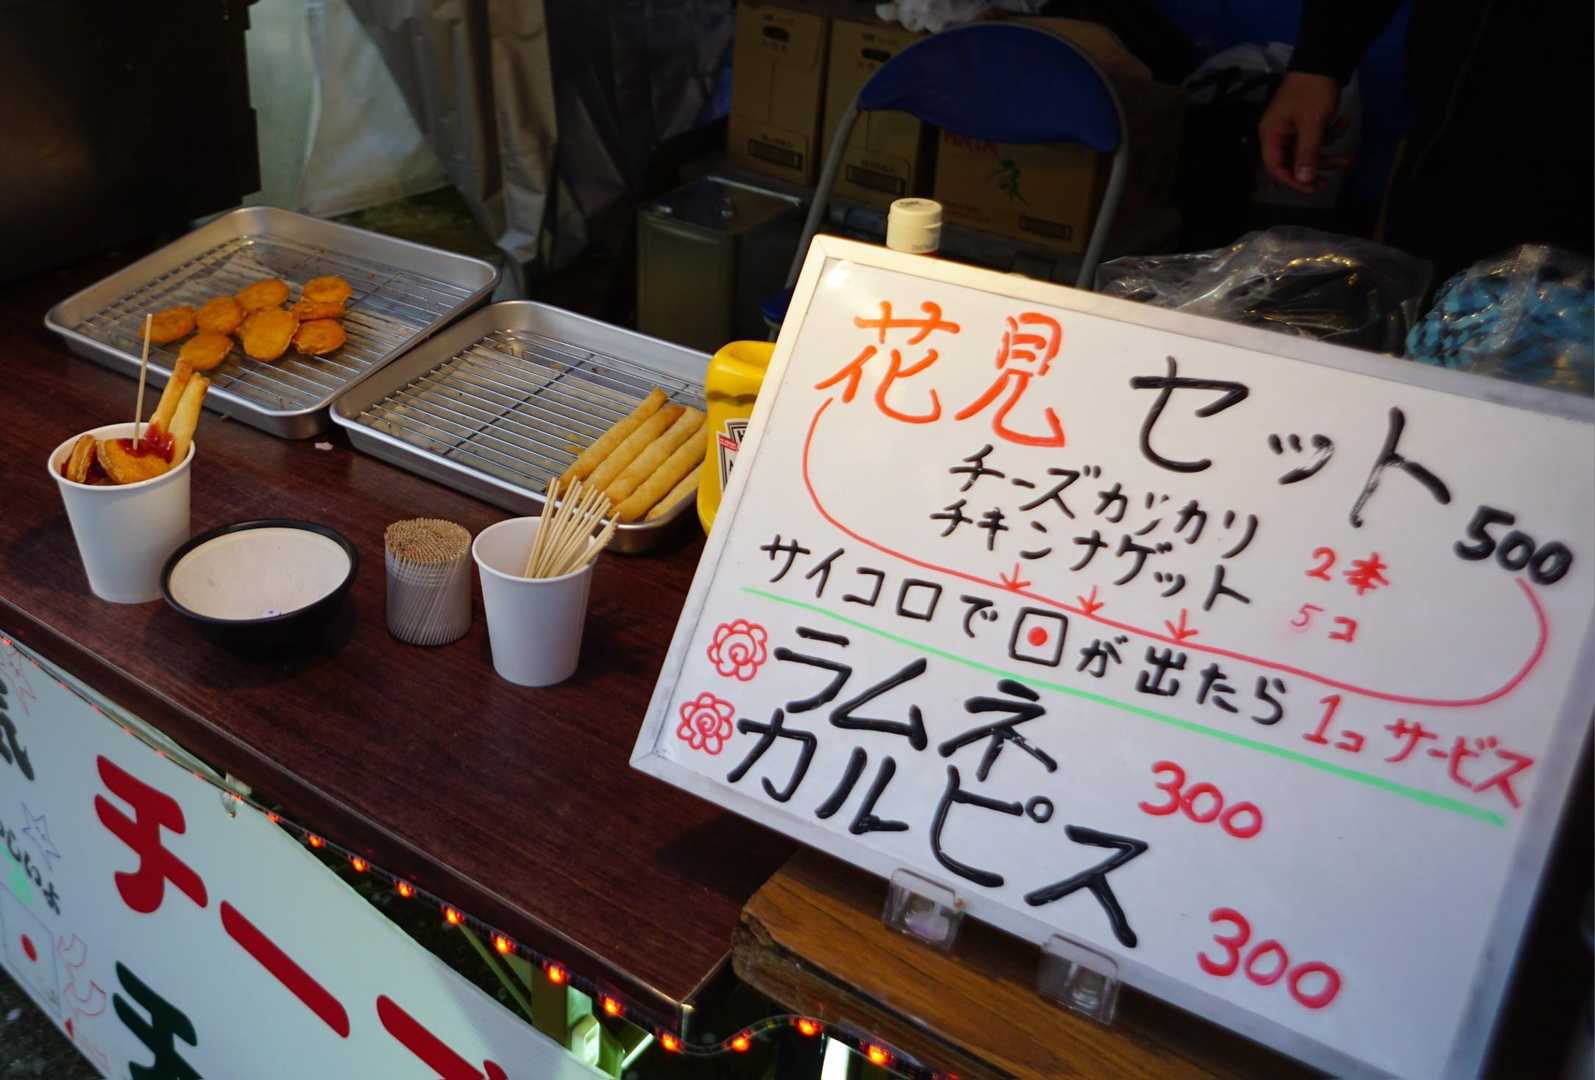 花見セット 500
チーズガッカリ 2本
チキンナゲット 5コ
サイコロで が出たら 1コ サービス
ラムネ 300
カルピス 300
チーズ
チ